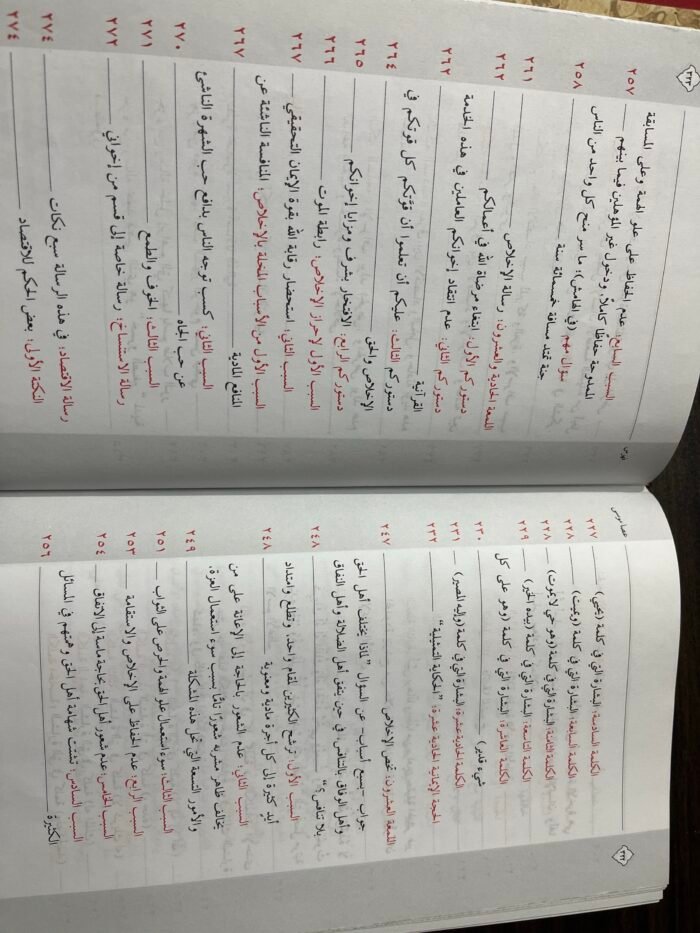 ٣٢٢
عصا موسى
الكلمة السادسة: البشارة التي في كلمة (يحيي) ٢٢٧
الكلمة السابعة: البشارة التي في كلمة (ويميت) ٢٢٨
الكلمة الثامنة: البشارة التي في كلمة (وهو حي لا يموت) ٢٢٨
الكلمة التاسعة: البشارة التي في كلمة (بيده الخير) ٢٢٩
الكلمة العاشرة: البشارة التي في كلمة (وهو على كل
شيء قدير) ٢٣٠
الكلمة الحادية عشرة: البشارة التي في كلمة (وإليه المصير) ٢٣١
الحجة الإيمانية الحادية عشرة: "الحكاية التمثيلية" ٢٣٢
اللمعة العشرون: تخص الإخلاص ٢٤٧
جواب -بسبع أسباب- عن السؤال "لماذا يختلف أهل الحق
وأهل الوفاق بالتنافس، في حين يتفق أهل الضلالة وأهل النفاق
بلا تنافس؟" ٢٤٨
السبب الأول: ترشح الكثيرين لمقام واحد، وتطلع وامتداد
أيدٍ كثيرة إلى كل أجرة مادية ومعنوية ٢٤٨
السبب الثاني: عدم الشعور بالحاجة إلى الإعانة على من
يخالف ظاهر مشربه شعورًا تامًّا بسبب سوء استعمال العزة،
والأمور التسعة التي تحل هذه المشكلة ٢٤٩
السبب الثالث: سوء استعمال علو الهمة والحرص على الثواب ٢٥١
السبب الرابع: عدم الحفاظ على الإخلاص والاستقامة ٢٥٣
السبب الخامس: عدم شعور أهل الحق بحاجة ماسة إلى الاتفاق ٢٥٤
السبب السادس: تشتت شهامة أهل الحق وهمتهم في المسائل
الكثيرة ٢٥٦
٣٢٣
السبب السابع: عدم الحفاظ على علو الهمة وعلى المسابقة
الممدوحة حفاظًا كاملًا، ودخول غير المؤهلين فيما بينهم ٢٥٧
سؤال مهم (في الهامش): ما سر منح كل واحد من الناس
جنة تمتد مسافة خمسمائة سنة ٢٥٨
اللمعة الحادية والعشرون: رسالة الإخلاص ٢٦١
دستوركم الأول: ابتغاء مرضاة الله في أعمالكم ٢٦٢
دستوركم الثاني: عدم انتقاد إخوانكم العاملين في هذه الخدمة
القرآنية ٢٦٢
دستوركم الثالث: عليكم أن تعلموا أن قوتكم كل قوتكم في
الإخلاص والحق ٢٦٤
دستوركم الرابع: الافتخار بشرف ومزايا إخوانكم ٢٦٥
السبب الأول لإحراز الإخلاص: رابطة الموت ٢٦٦
السبب الثاني: استحضار رقابة الله بقوة الإيمان التحقيقي ٢٦٧
السبب الأول من الأسباب المخلة بالإخلاص: المنافسة الناشئة عن
المنافع المادية ٢٦٧
السبب الثاني: كسب توجه الناس بدافع حب الشهرة الناشئ
عن حب الجاه ٢٧٠
السبب الثالث: الخوف والطمع ٢٧١
رسالة الاستنساخ: رسالة خاصة إلى قسم من إخواني ٢٧٢
رسالة الاقتصاد: في هذه الرسالة سبع نكات ٢٧٤
النكتة الأولى: بعض الحكم للاقتصاد ٢٧٤